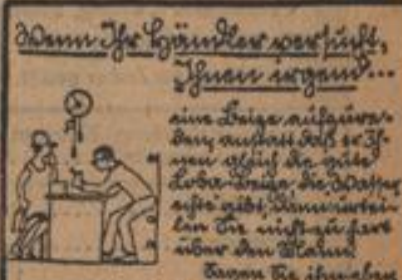 Wenn Ihr Händler versucht,
Ihnen irgend...
eine Beize aufzure-
den, anstatt daß er Ih-
nen gleich die gute
Loba-Beize, die Wasser
echte gibt, dann urtei-
len Sie nicht zu hart
über den Mann.
Sagen Sie ihm eben